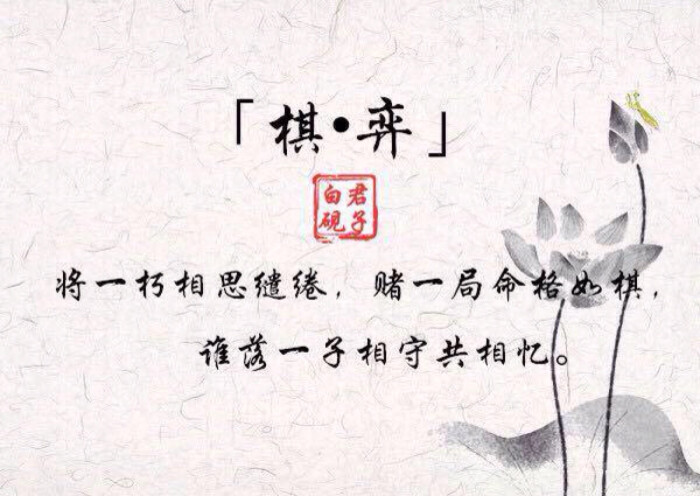 「棋•弈」
君子
白砚
将一朽相思缱绻，赌一局命格如棋，
谁落一子相守共相忆。